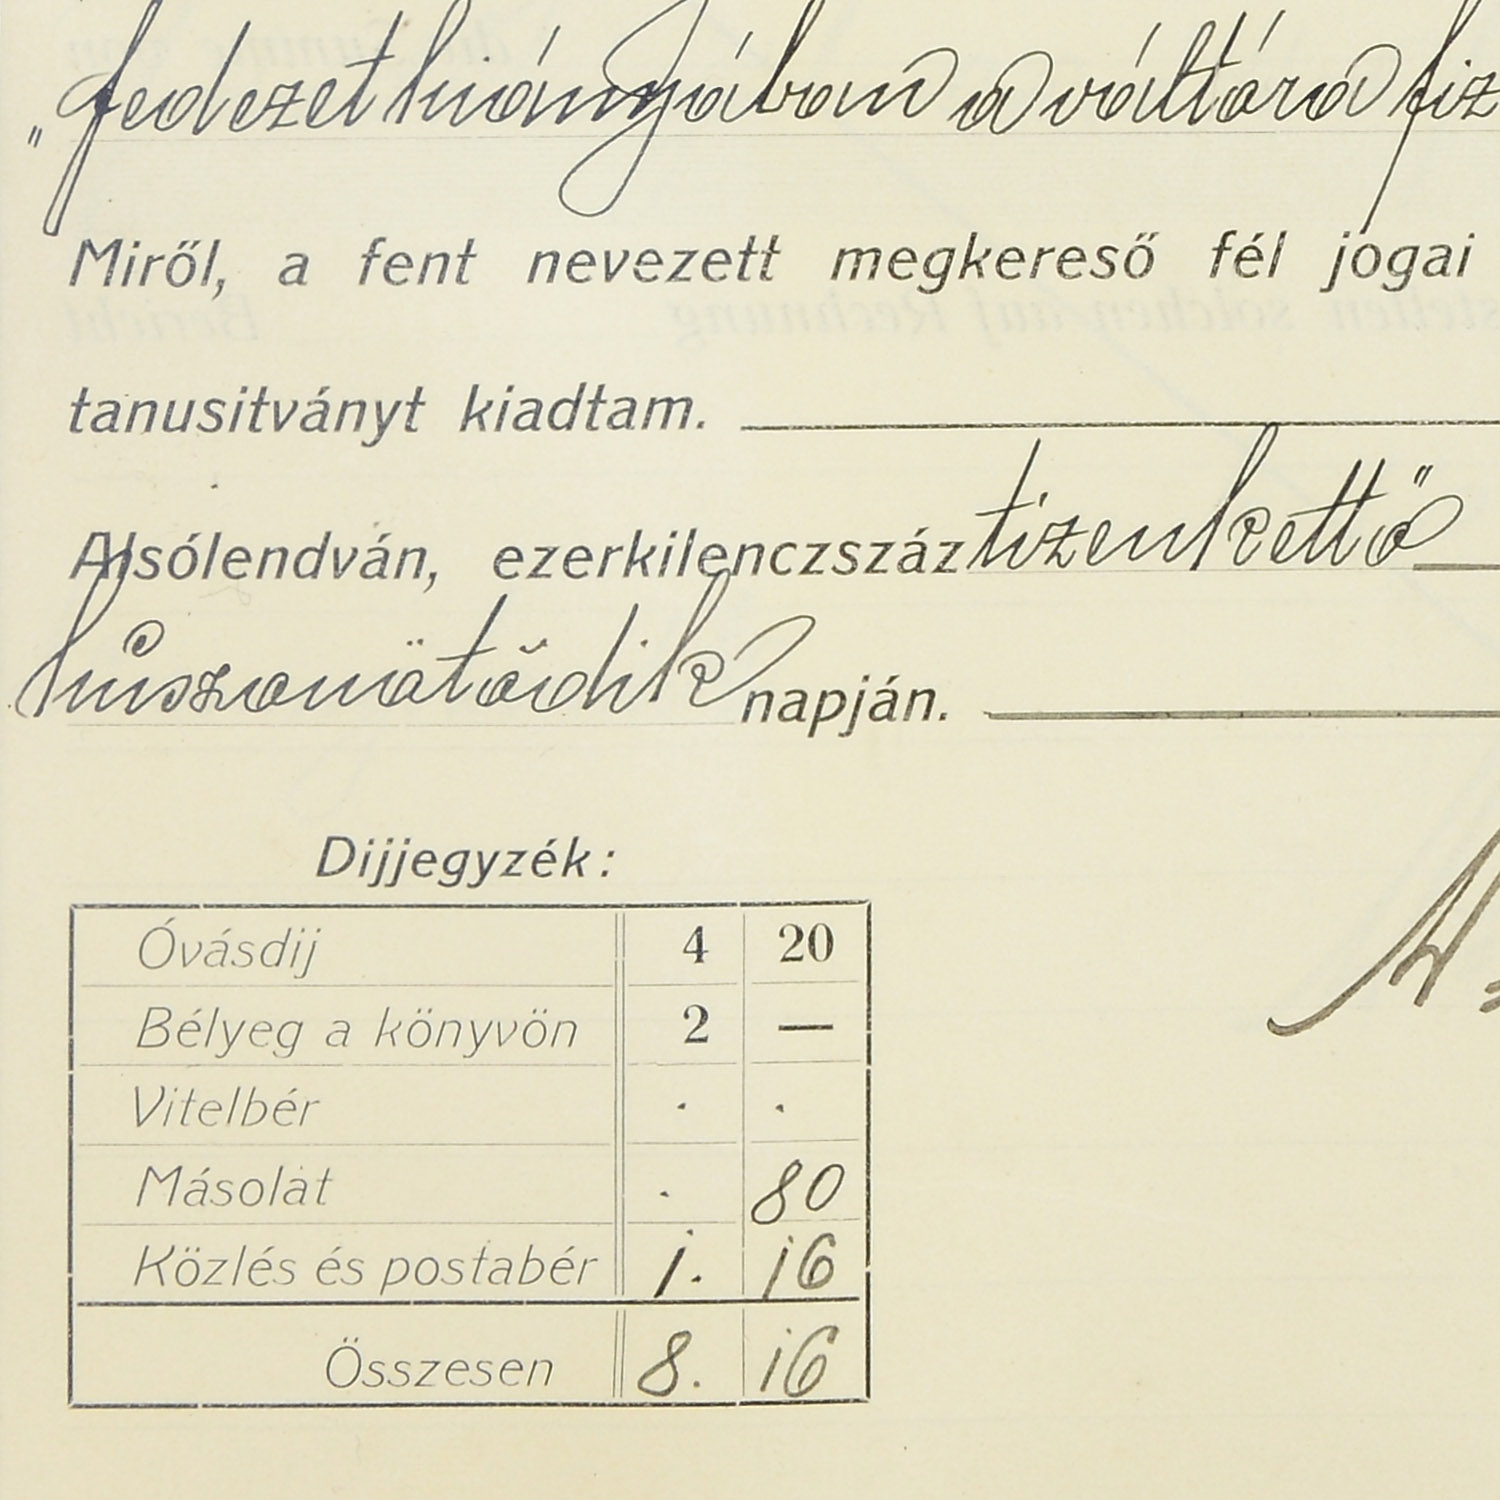 "fedezet hiányában a váltóra fiz
Miről, a fent nevezett megkereső fél jogai
tanusitványt kiadtam.
Alsólendván, ezerkilenczszáz tizenkettő
húszonötödik napján.
Dijjegyzék:
Óvásdij 4 20
Bélyeg a könyvön 2 —
Vitelbér . .
Másolat . 80
Közlés és postabér 1. 16
Összesen 8. 16